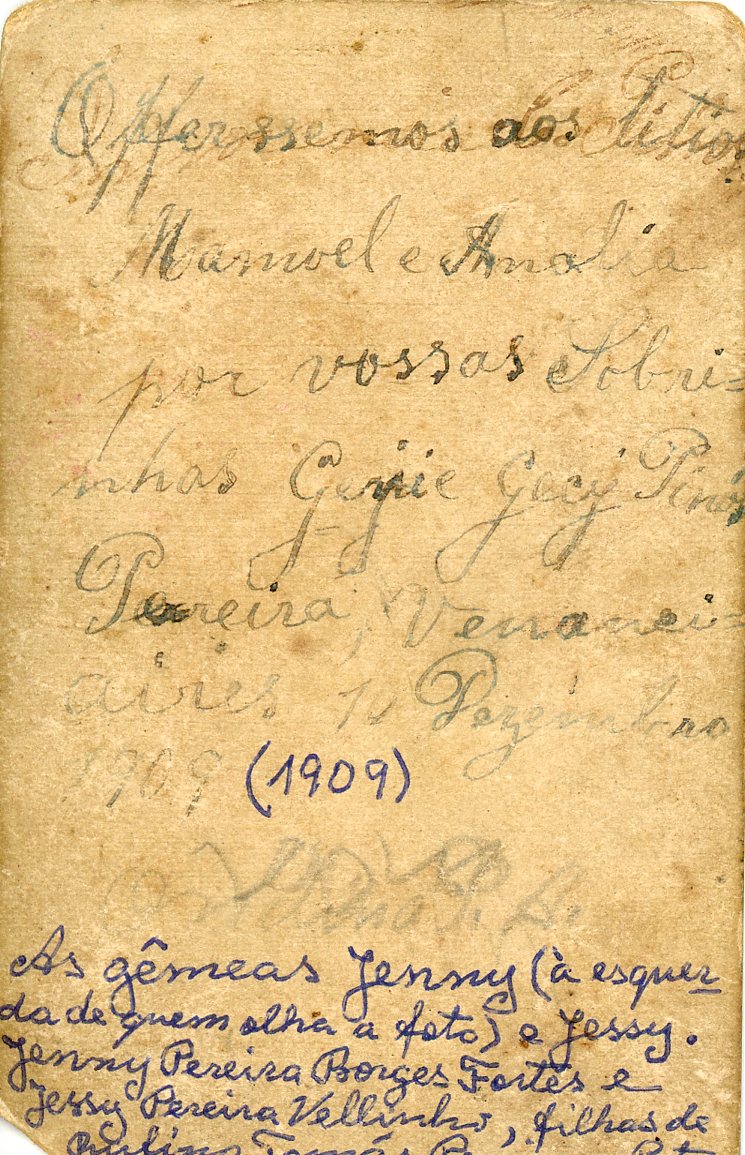 Offerssemos aos Titios
Manoel e Analia
por vossas Sobri=
nhas Genie Gecy
Pereira, Venanci=
aires 10 Dezembro
1909 (1909)
As gêmeas Jenny (à esquer
da de quem olha a foto) e Jessy.
Jenny Pereira Borges Fortes e
Jessy Pereira Vellinho, filhas de